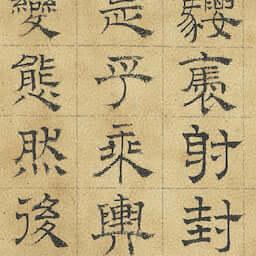 騕褭射封
是乎乘輿
變態然後